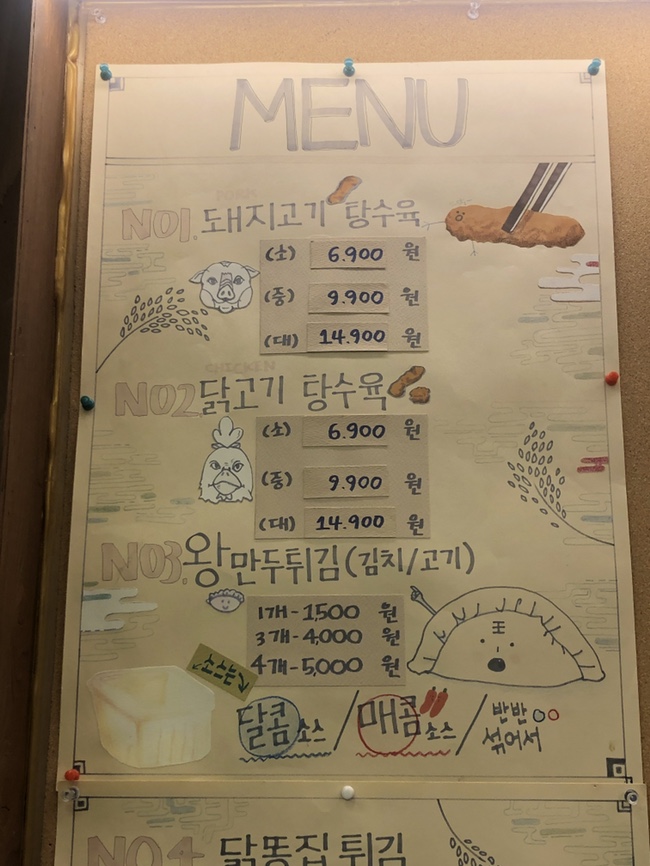 MENU
NO1. 돼지고기 탕수육
(소) 6.900 원
(중) 9.900 원
(대) 14.900 원
CHICKEN
NO2 닭고기 탕수육
(소) 6.900 원
(중) 9.900 원
(대) 14.900 원
NO3. 왕만두튀김(김치/고기)
1개-1,500 원
3개-4,000 원
4개-5,000 원
소스는↗
달콤소스/매콤소스/반반
섞어서
NO4 닭똥집 튀김